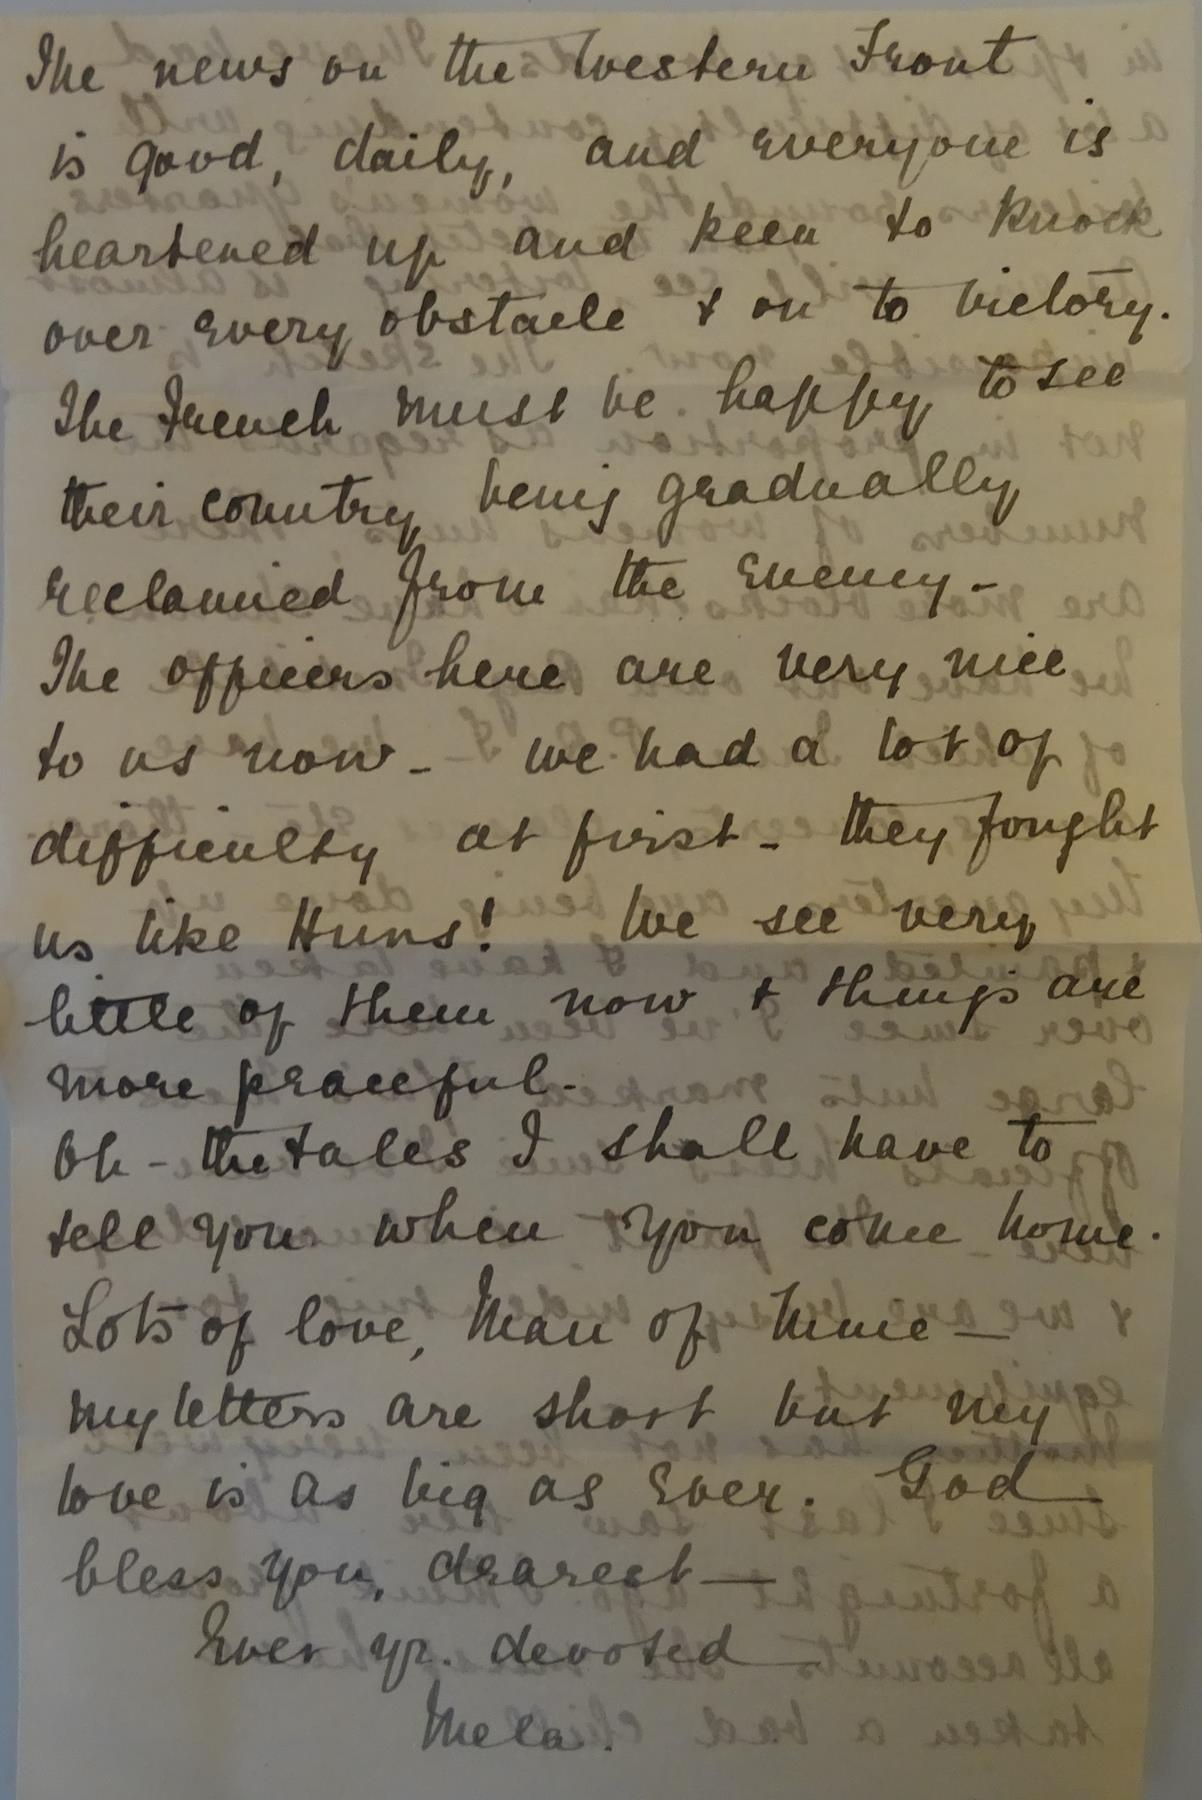 The news on the Western Front
is good, daily, and everyone is
heartened up and keen to knock
over every obstacle & on to victory.
The French must be happy to see
their country being gradually
reclaimed from the enemy -
The officers here are very nice
to us now - we had a lot of
difficulty at first - they fought
us like Huns! We see very
little of them now & things are
more peaceful -
Oh - the tales I shall have to
tell you when you come home.
Lots of love, Man of Mine -
my letters are short but my
love is as big as ever. God
bless you, dearest -
Ever yr. devoted
Mela.